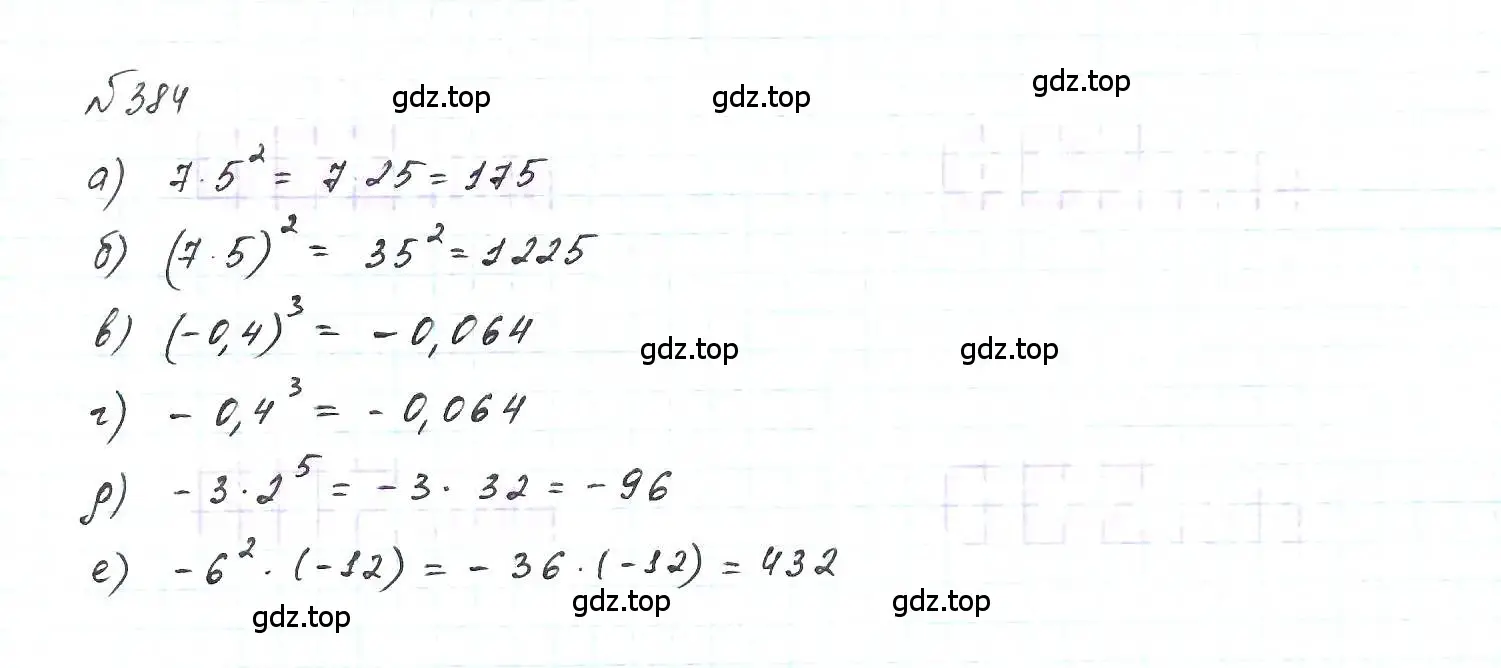 № 384
gdz.top gdz.top gdz.top
а) 7·5² = 7·25 = 175
б) (7·5)² = 35² = 1225
в) (-0,4)³ = -0,064
gdz.top gdz.top
г) -0,4³ = -0,064
д) -3·2⁵ = -3·32 = -96
е) -6²·(-12) = -36·(-12) = 432
gdz.top gdz.top gdz.top